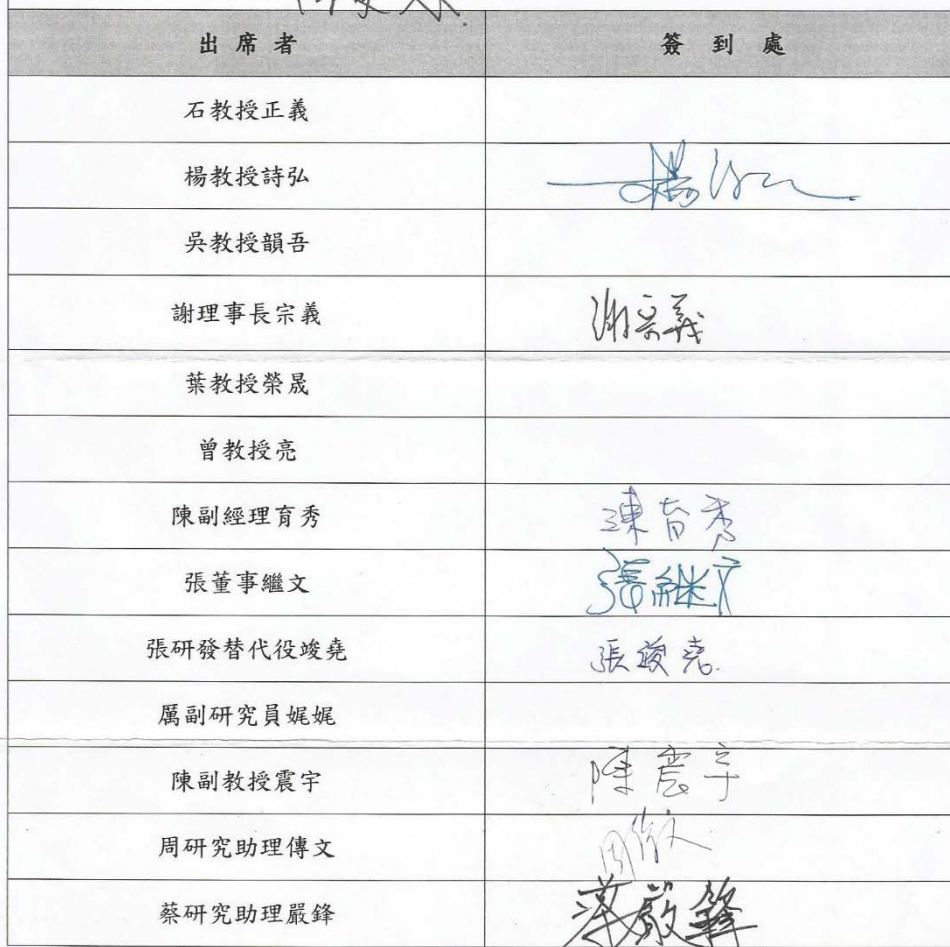 出席者 簽到處
石教授正義
楊教授詩弘 楊詩弘
吳教授韻吾
謝理事長宗義 謝宗義
葉教授榮晟
曾教授亮
陳副經理育秀 陳育秀
張董事繼文 張継文
張研發替代役竣堯 張竣堯
厲副研究員娓娓
陳副教授震宇 陳震宇
周研究助理傳文 周傳文
蔡研究助理嚴鋒 蔡嚴鋒